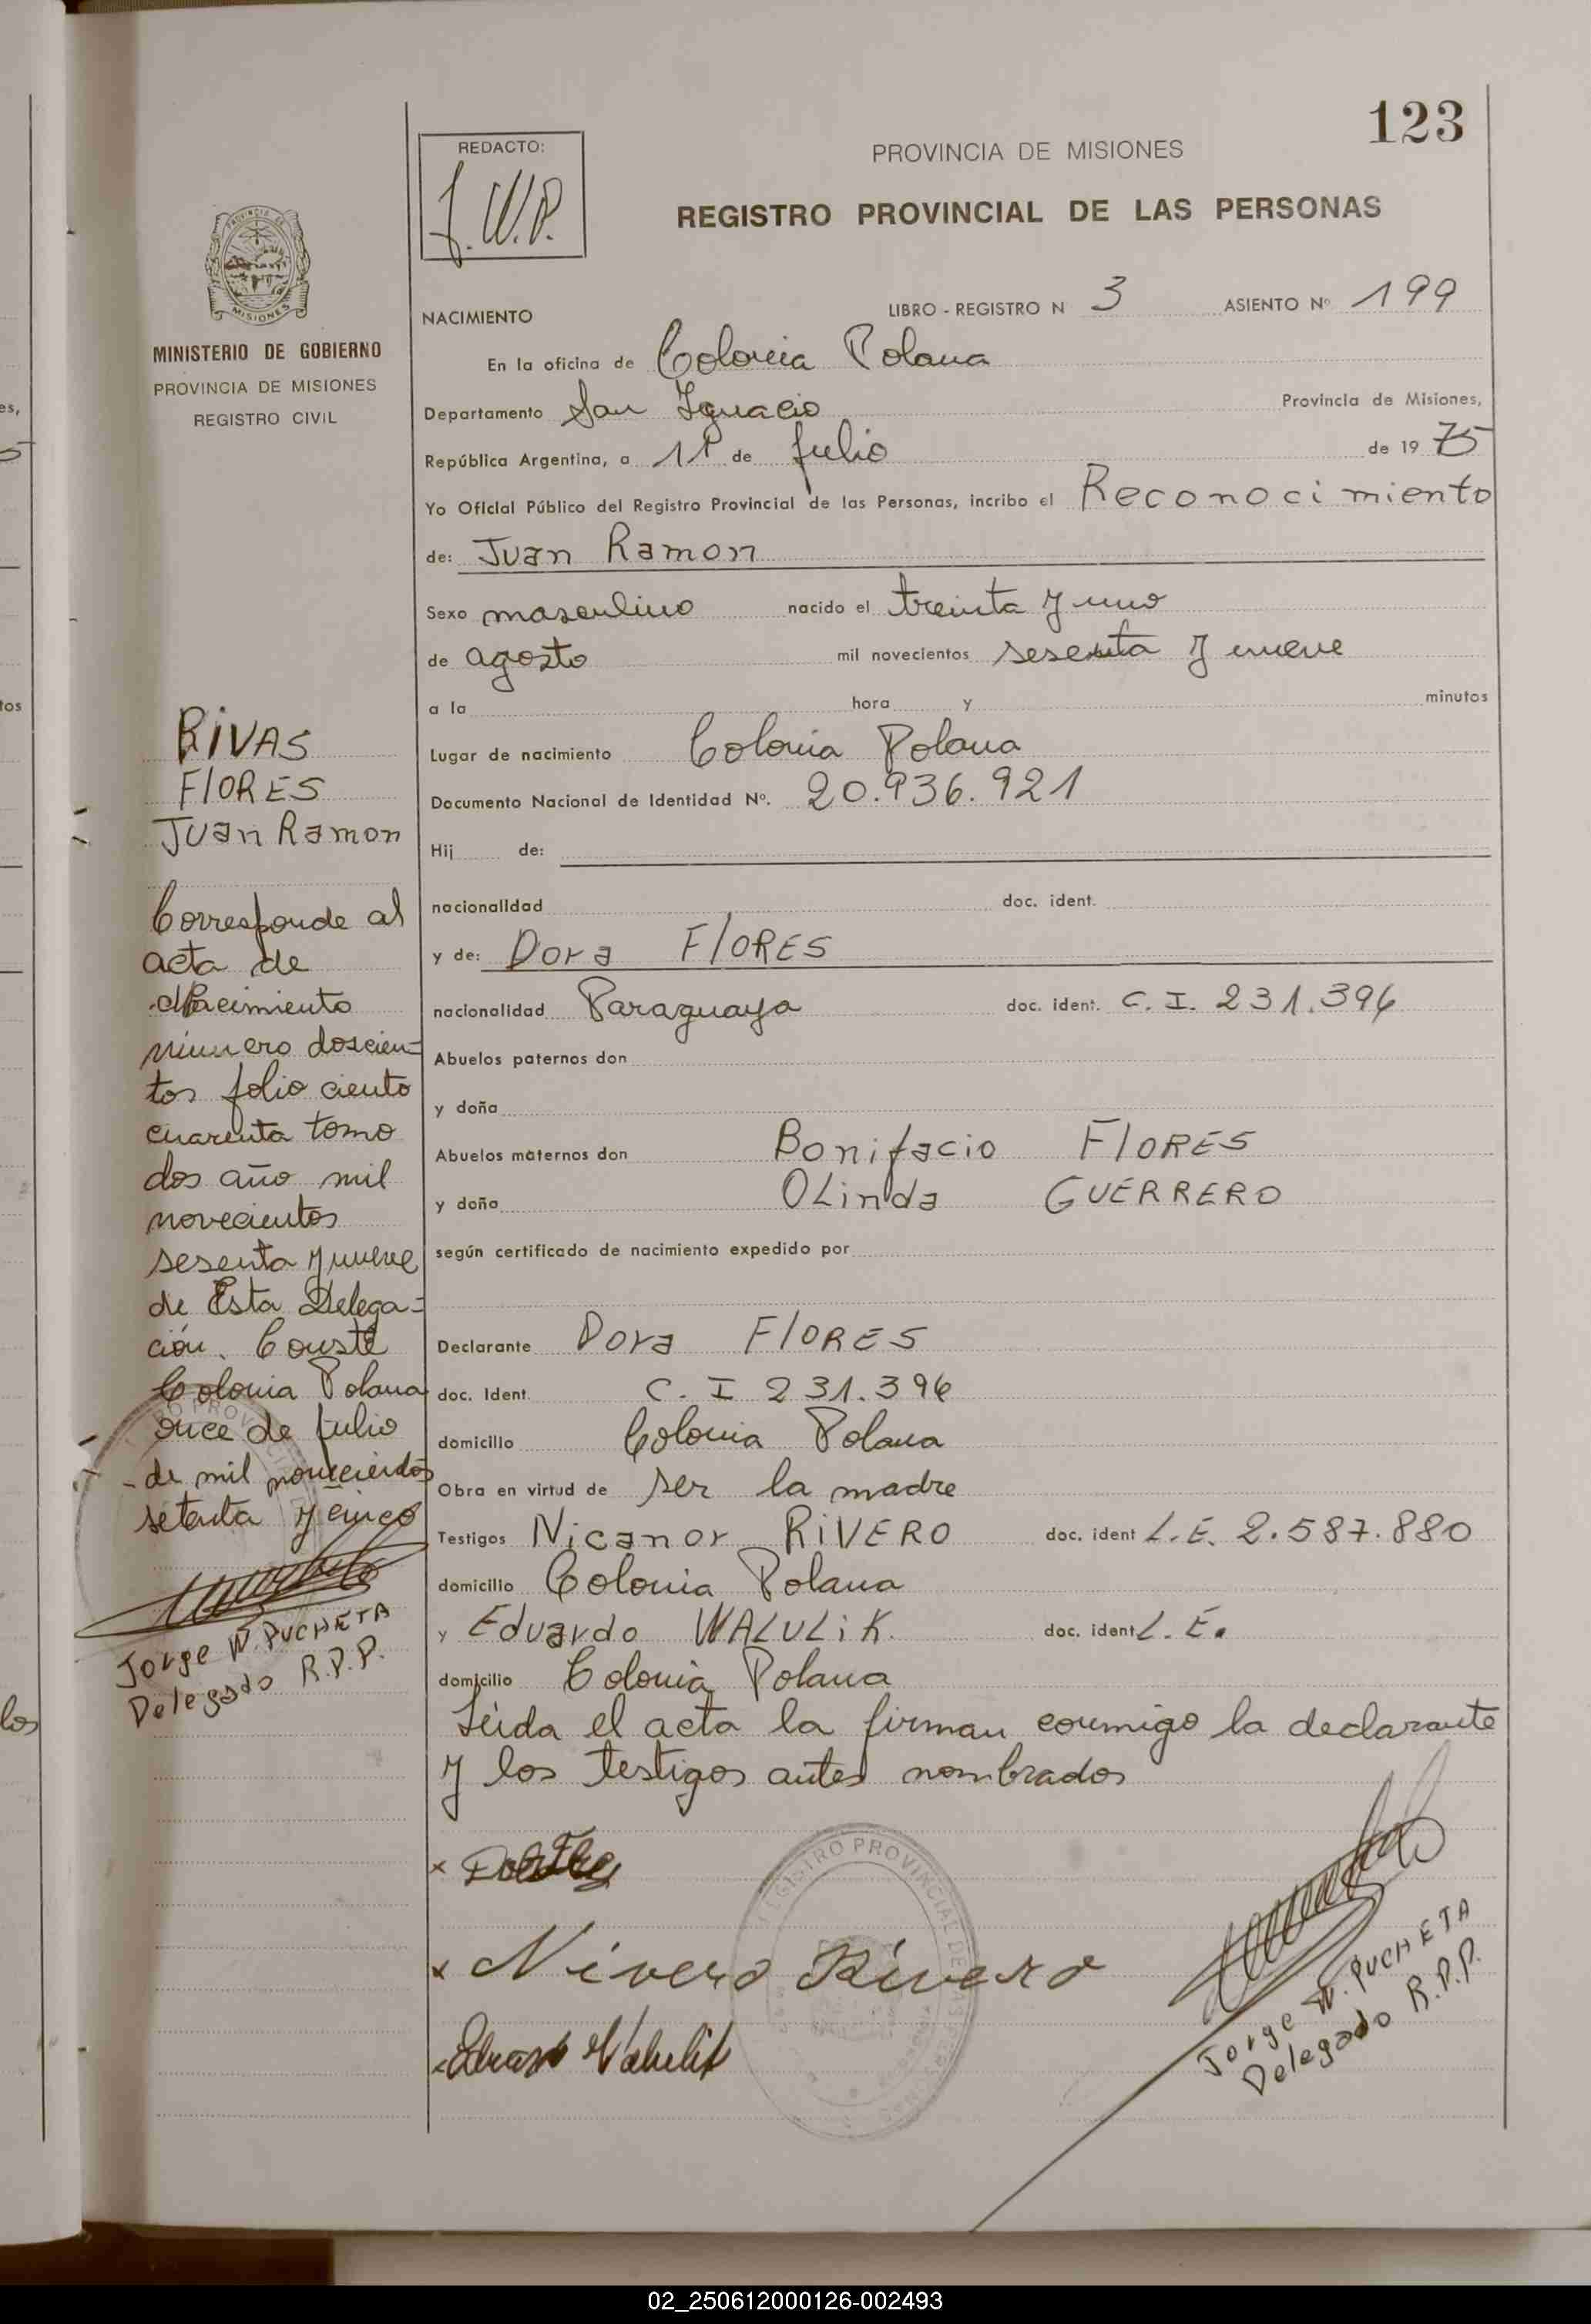 123
REDACTO:
J.W.P.
PROVINCIA DE MISIONES
REGISTRO PROVINCIAL DE LAS PERSONAS
NACIMIENTO
LIBRO - REGISTRO N 3 ASIENTO Nº 199
En la oficina de Colonia Polana
Departamento San Ignacio Provincia de Misiones,
República Argentina, a 11 de Julio de 19 75
Yo Oficial Público del Registro Provincial de las Personas, incribo el Reconocimiento
de: Juan Ramon
Sexo masculino nacido el treinta y uno
de agosto mil novecientos sesenta y nueve
a la hora y minutos
Lugar de nacimiento Colonia Polana
Documento Nacional de Identidad Nº. 20.936.921
Hij de:
nacionalidad doc. ident.
y de: Dora FlORES
nacionalidad Paraguaya doc. ident. C. I. 231.396
Abuelos paternos don
y doña
Abuelos maternos don Bonifacio FlORES
y doña OLinda GUERRERO
según certificado de nacimiento expedido por
Declarante Dora FlORES
doc. Ident. C. I 231.396
domicilio Colonia Polana
Obra en virtud de ser la madre
Testigos Nicanor RiVERO doc. ident L.E. 2.587.880
domicilio Colonia Polana
y Eduardo WALULiK. doc. ident L. E.
domicilio Colonia Polana
Leida el acta la firman conmigo la declarante
y los testigos antes nombrados
x
x Nivero Rivero
Jorge W. PUCHETA
Delegado R.P.P.
REGISTRO PROVINCIAL DE
MISIONES
MINISTERIO DE GOBIERNO
PROVINCIA DE MISIONES
REGISTRO CIVIL
RiVAS
FlORES
Juan Ramon
Corresponde al
acta de
Nacimiento
número doscien-
tos folio ciento
cuarenta tomo
dos año mil
novecientos
sesenta y nueve
de Esta Delega-
ción. Conste
Colonia Polana
once de Julio
de mil novecientos
setenta y cinco
Jorge W. PUCHETA
Delegado R.P.P.
es,
tos
los
02_250612000126-002493